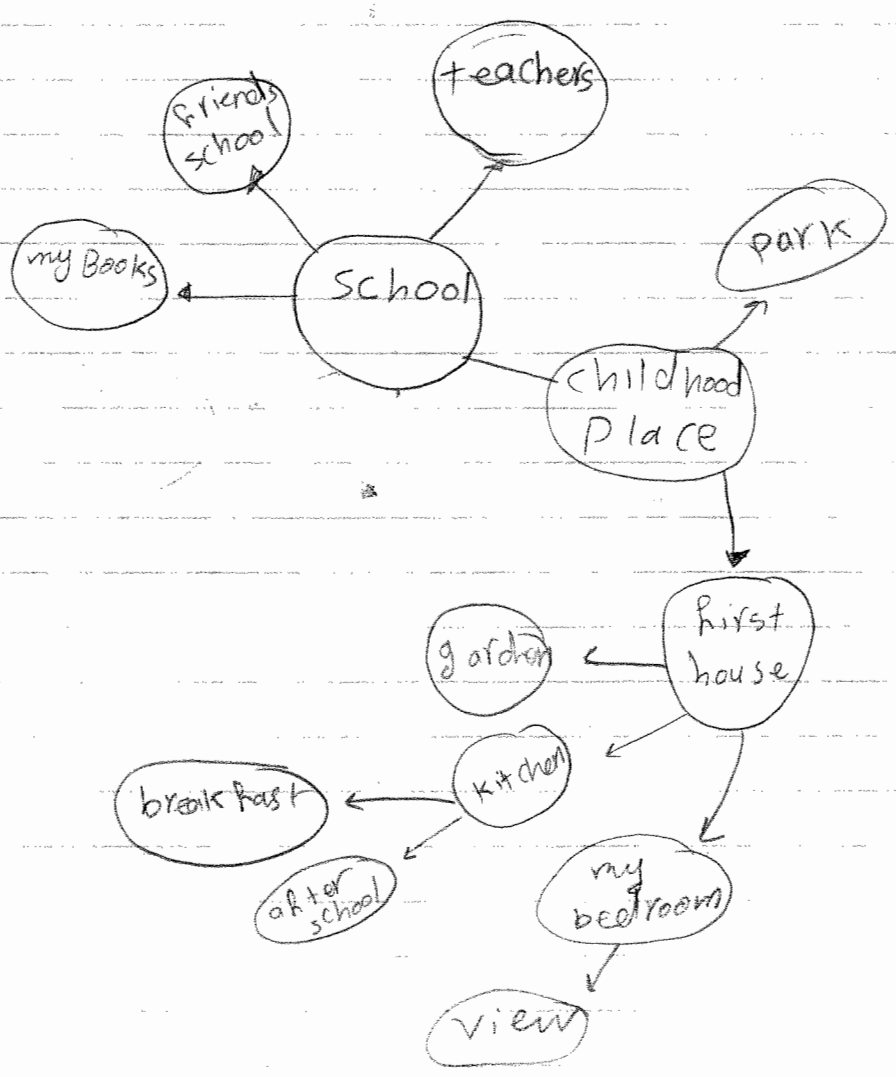 teachers
friends
school
my Books
school
park
childhood
place
first
house
garden
kitchen
breakfast
after
school
my
bedroom
view